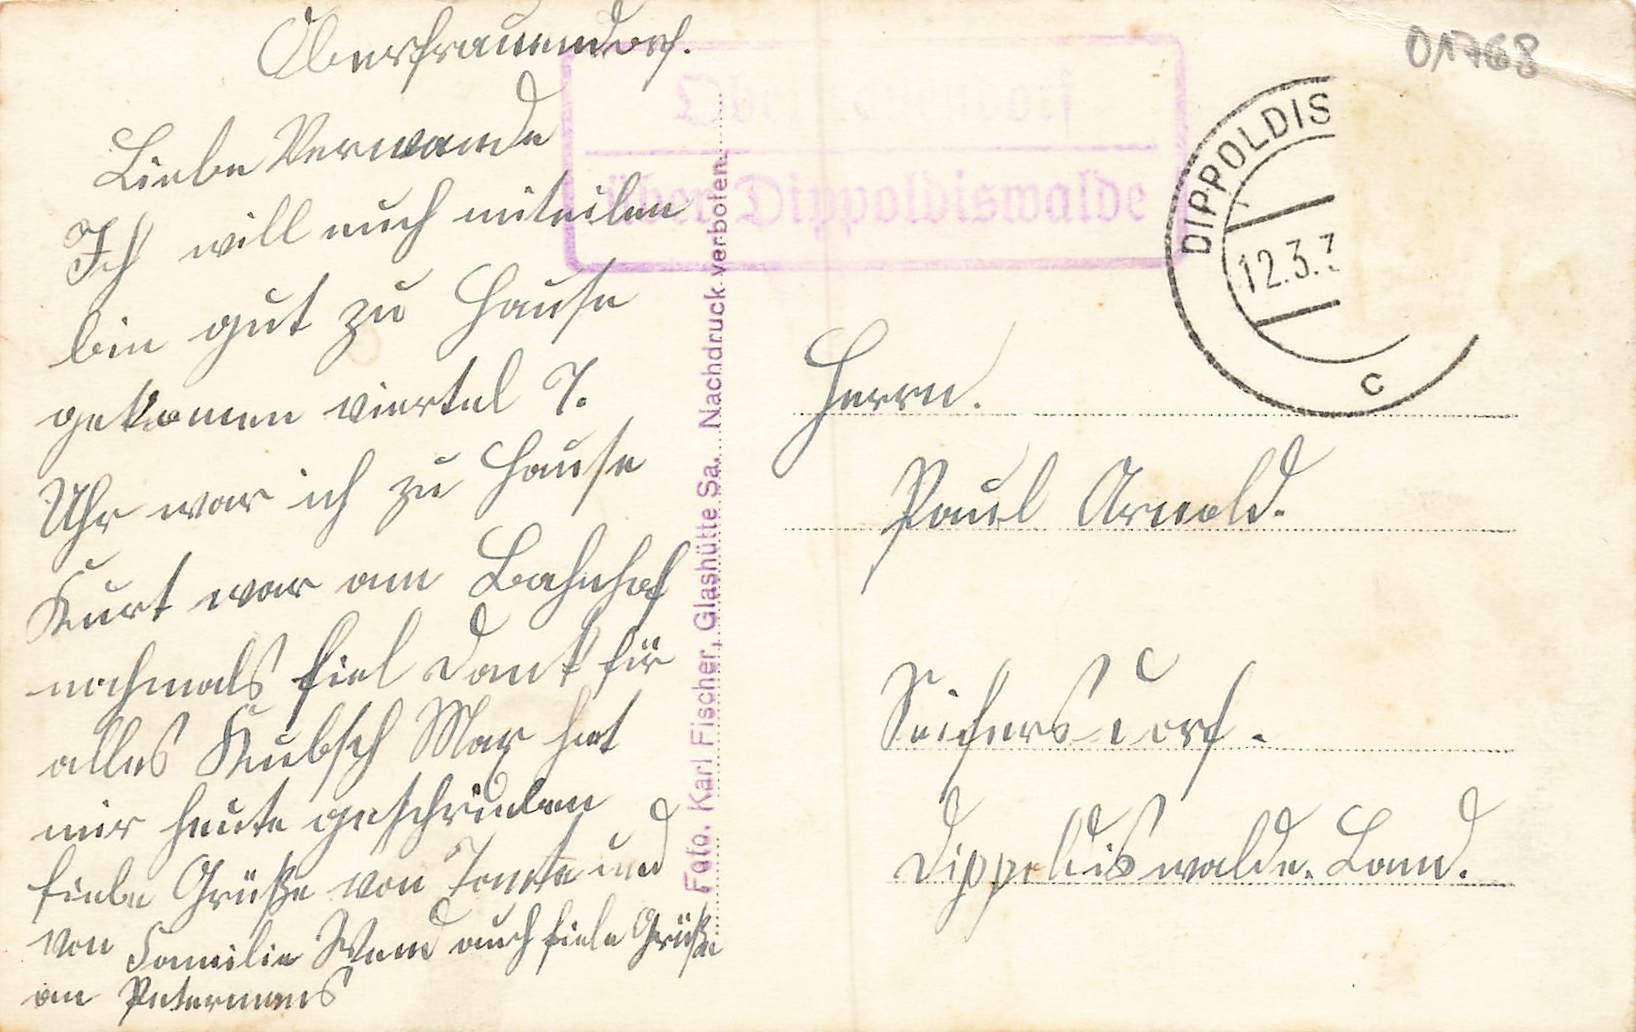 Oberfrauendorf.
Liebe Verwande
Ich will euch miteilen
bin gut zu Hause
gekomen viertel 7.
Uhr war ich zu Hause
Kurt war am Bahnhof
nochmals fiel Dank für
alles Kubsch Max hat
mir heute geschrieben
fiele Grüße von Tante und
von Familie Wend auch fiele Grüße
an Petermans
Oberfrauendorf
über Dippoldiswalde
Foto. Karl Fischer, Glashütte Sa. Nachdruck verboten.
01768
DIPPOLDIS
12.3.3
c
Herrn.
Paul Arnold.
Seifersdorf.
Dippoldiswalde. Land.